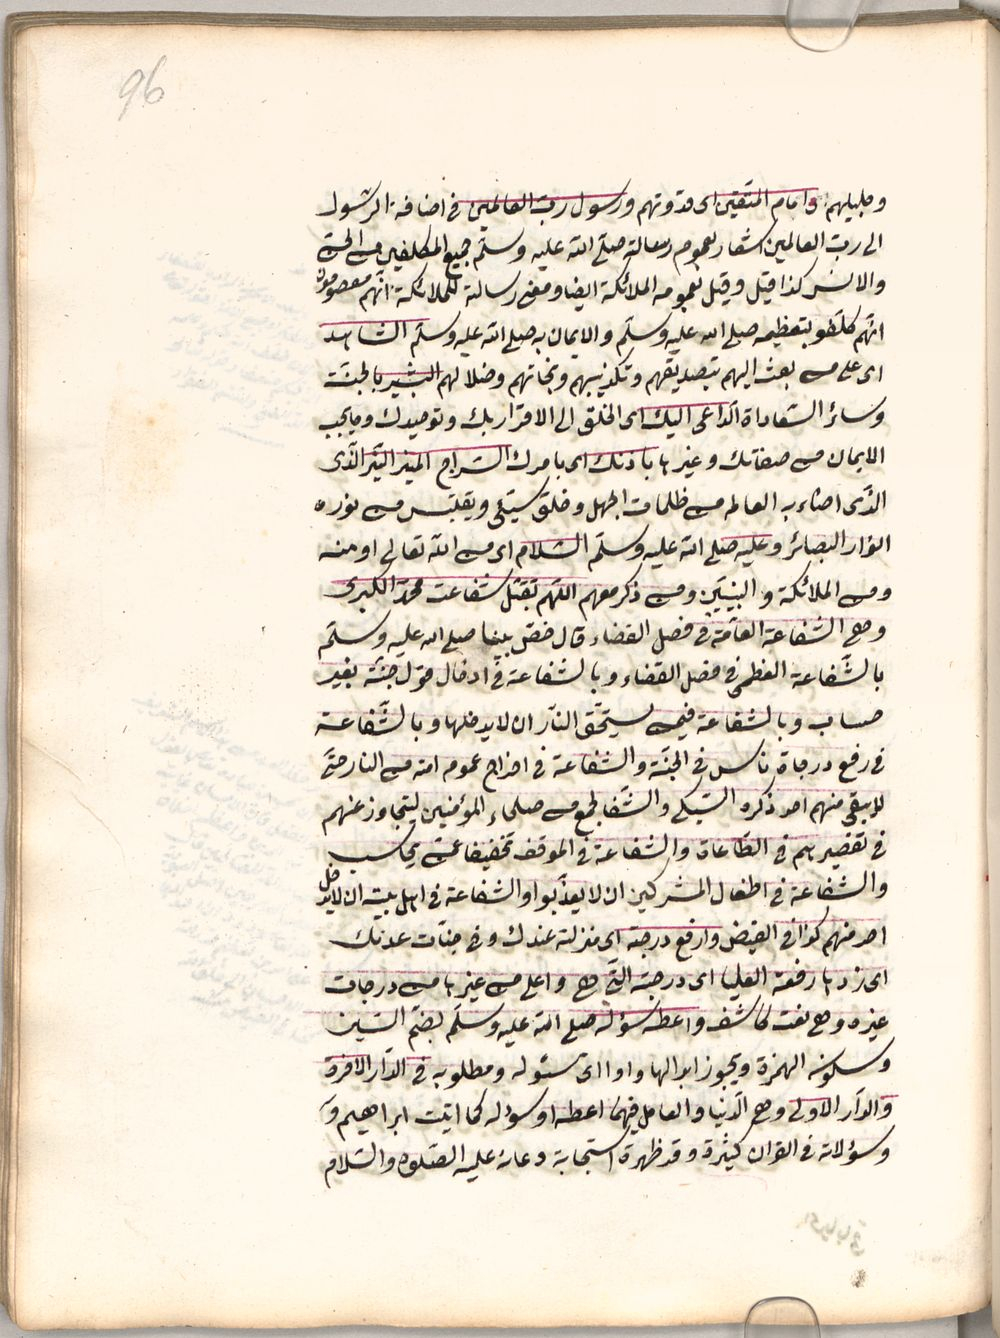 96
وجليلهم وامام المتقين اى قدوتهم ورسول رب العالمين فى اضافة الرسول
الى رب العالمين اشعار بعموم رسالته صلى الله عليه وسلم جميع المكلفين من الجن
والانس كذا قيل وقيل بعمومه الملائكة ايضا ومعنى رسالة للملائكة انهم معصومون
انهم كلفوا بتعظيمه صلى الله عليه وسلم والايمان به صلى الله عليه وسلم الشاهد
اى على من بعث اليهم بتصديقهم وتكذيبهم ونجاتهم وضلالهم البشير بالجنة
وسائر السعاداة الداعى اليك اى الخلق الى الاقرار بك وتوحيدك وما يجب
الايمان من صفاتك وغيرها باذنك اى بامرك السراج المنير النير الذى
الذى اضاء به العالم من ظلمات الجهل وخلق ويقتبس من نوره
انوار البصائر وعليه صلى الله عليه وسلم السلام اى من الله تعالى او منه
ومن الملائكة والنبيين ومن ذكر معهم اللهم تقبل شفاعت محمد الكبرى
وهى الشفاعة العامة فى فصل القضاء قال خص نبينا صلى الله عليه وسلم
بالشفاعة العظمى فى فصل القضاء وبالشفاعة فى ادخال قوم الجنة بغير
حساب وبالشفاعة فيمن يستحق النار ان لا يدخلها وبالشفاعة
فى رفع درجاة ناس فى الجنة والشفاعة فى اخراج عموم امته من النار حتى
لا يبقى منهم احد ذكره السبكى والشفا لجمع من صلحاء المؤمنين ليتجاوز عنهم
فى تقصيرهم فى الطاعات والشفاعة فى الموقف تخفيفا عمن يحاسب
والشفاعة فى اطفال المشركين ان لا يعذبوا والشفاعة فى اهل بيته ان لا يدخل
احد منهم كذا فى الفيض وارفع درجته اى منزلته عندك وفى جنات عدنك
اى زدها رفعة العليا اى درجته التى هى واعلى من غيرها من درجات
غيره وهى نعت كاشف واعطه سؤله صلى الله عليه وسلم بضم السين
وسكونه الهمزة ويجوز ابدالها واوا اى سئوله ومطلوبه فى الدار الاخرة
والدار الاولى وهى الدنيا والعامل فيهما اعطه او سؤله كما اتيت ابراهيم و
وسؤلاته فى القران كثيرة وقد ظهرة استجابة دعائه عليه الصلوة والسلام